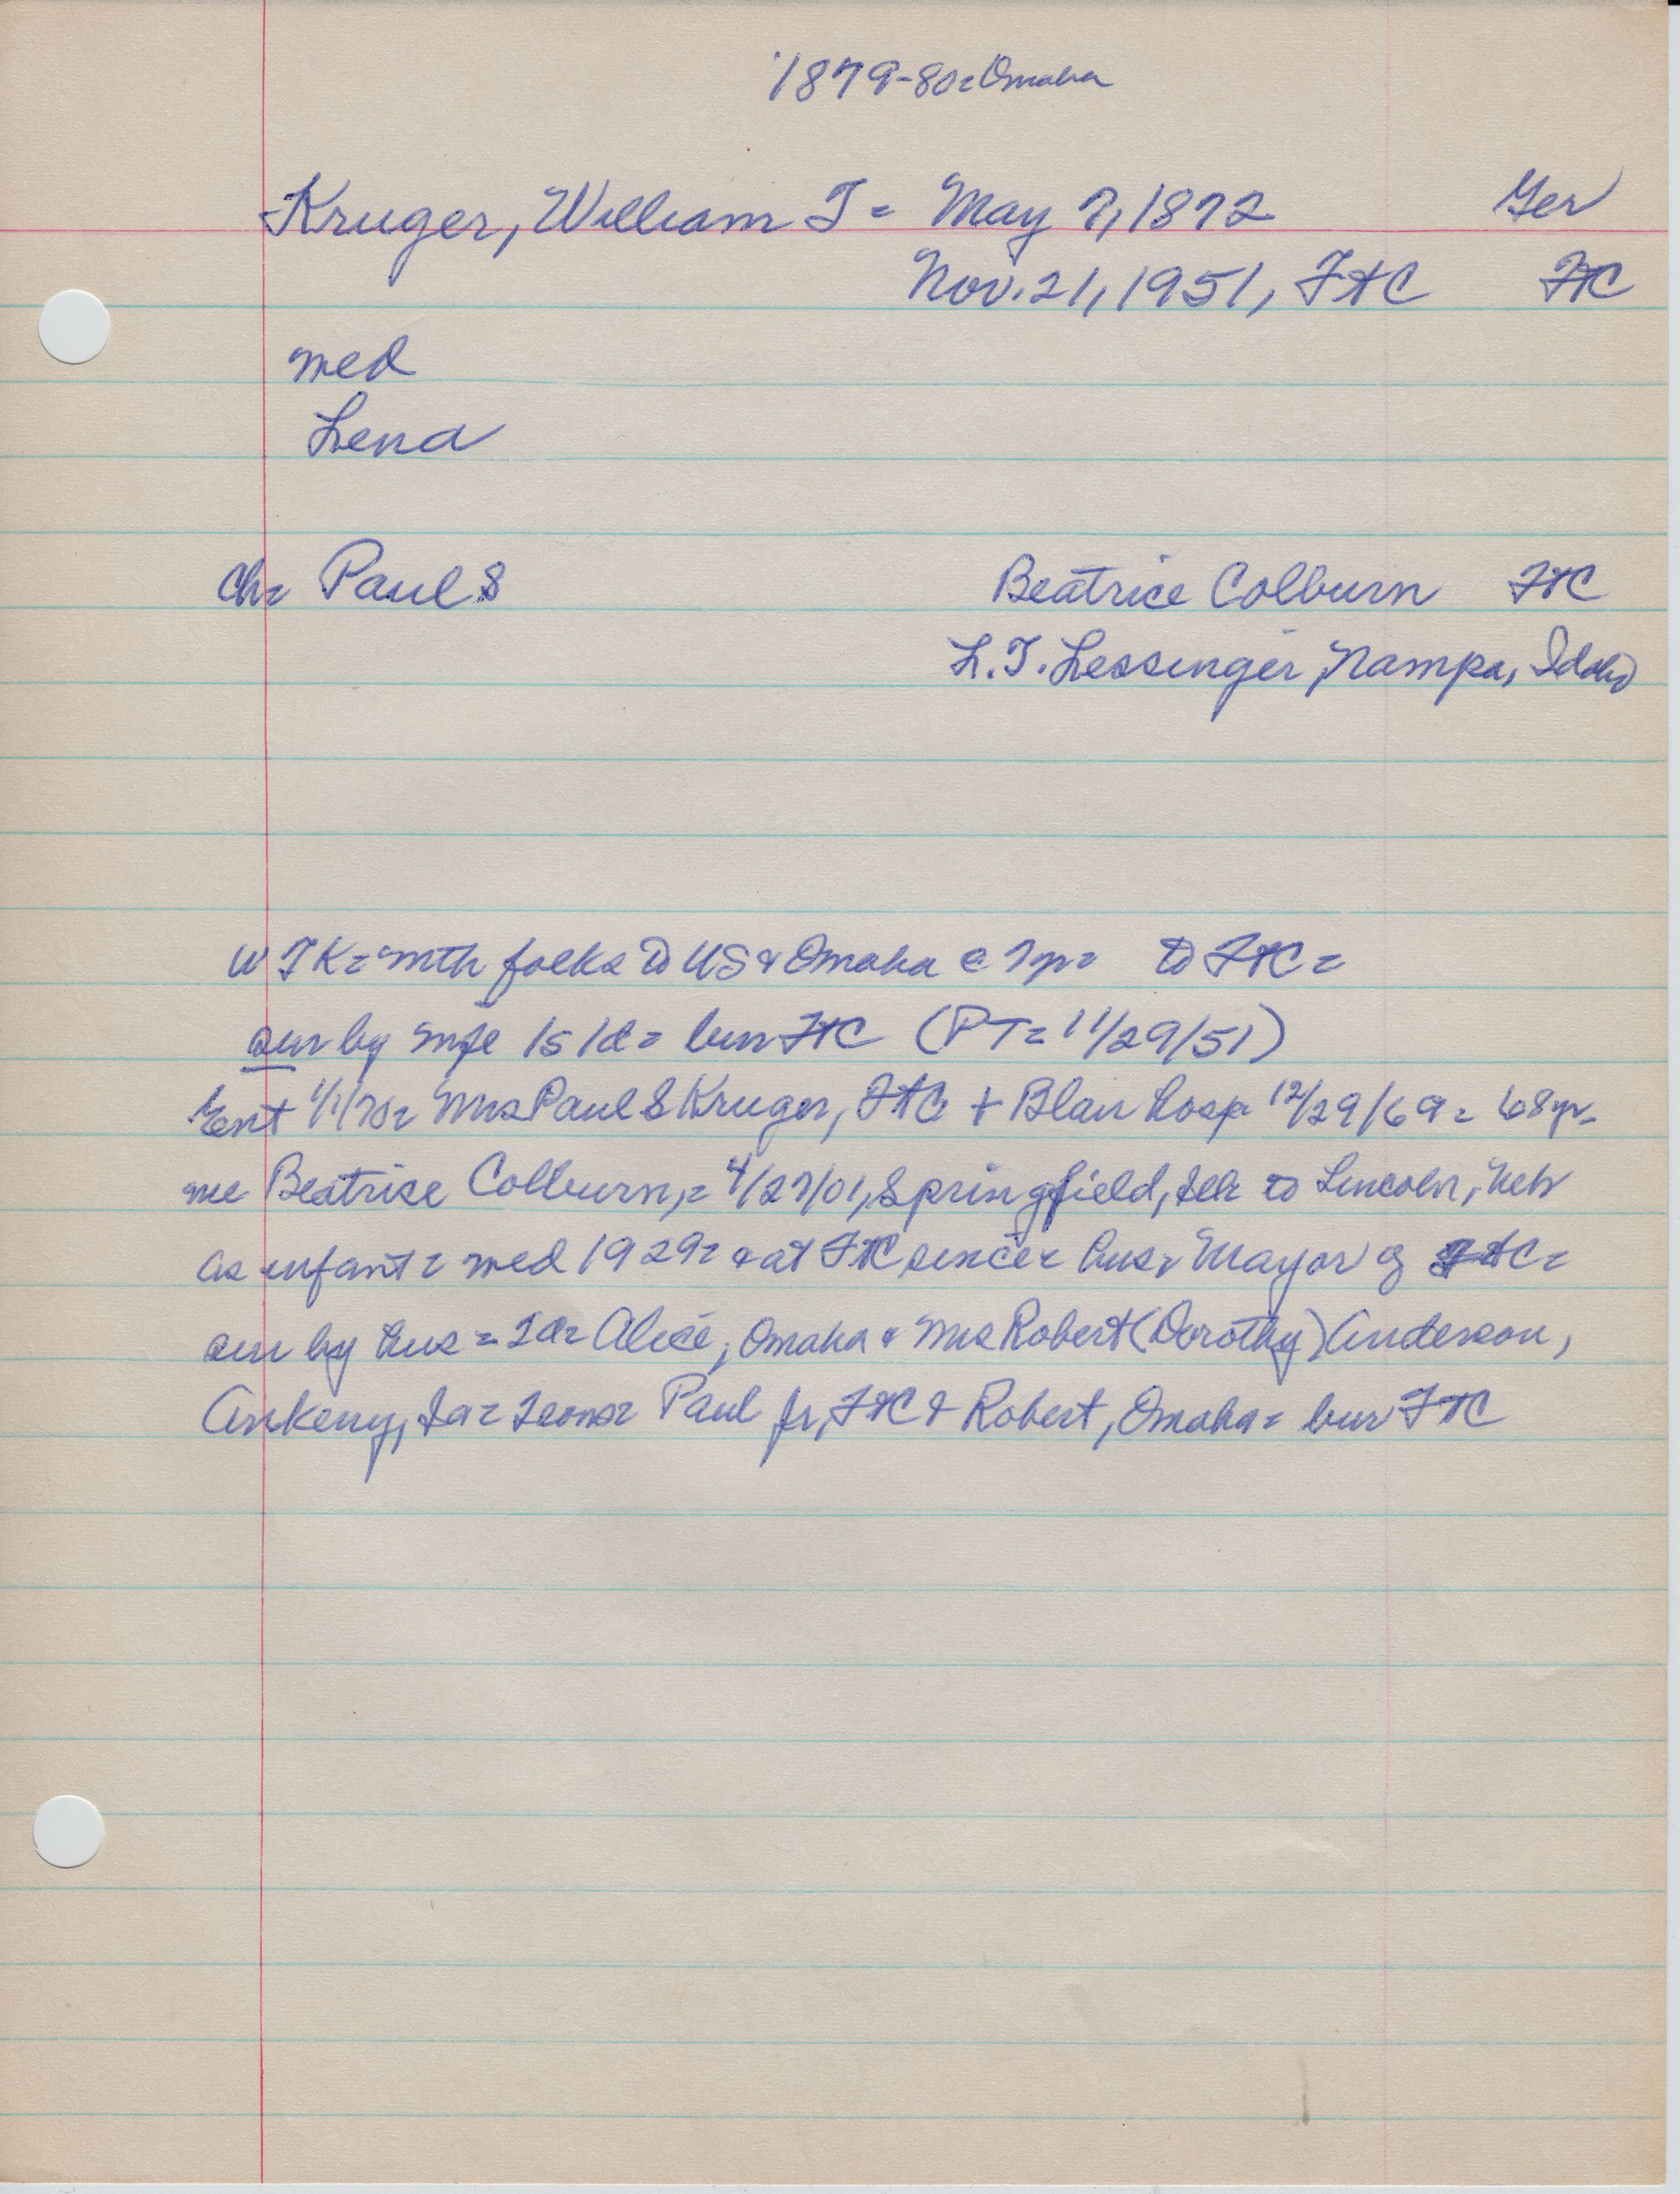 1879-80= Omaha
Kruger, William T = May 7, 1872 Ger
Nov. 21, 1951, FtC FtC
med
Lena
Ch= Paul S Beatrice Colburn FtC
L. T. Lessinger, Nampa, Idaho
WTK= with folks to US & Omaha @ 7yr= to FtC=
sur by wife 1s 1d= bur FtC (PT= 11/29/51)
Ent 1/1/70= Mrs Paul S Kruger, FtC + Blair hosp 12/29/69= 68yr=
nee Beatrise Colburn,= 4/27/01, Springfield, Ill= to Lincoln, Neb
as infant= med 1929= & at FtC since= hus= Mayor of FtC=
sur by hus= 2d= Alice, Omaha & Mrs Robert (Dorothy) Anderson,
Ankeny, Ia= 2sons= Paul Jr, FtC & Robert, Omaha= bur FtC